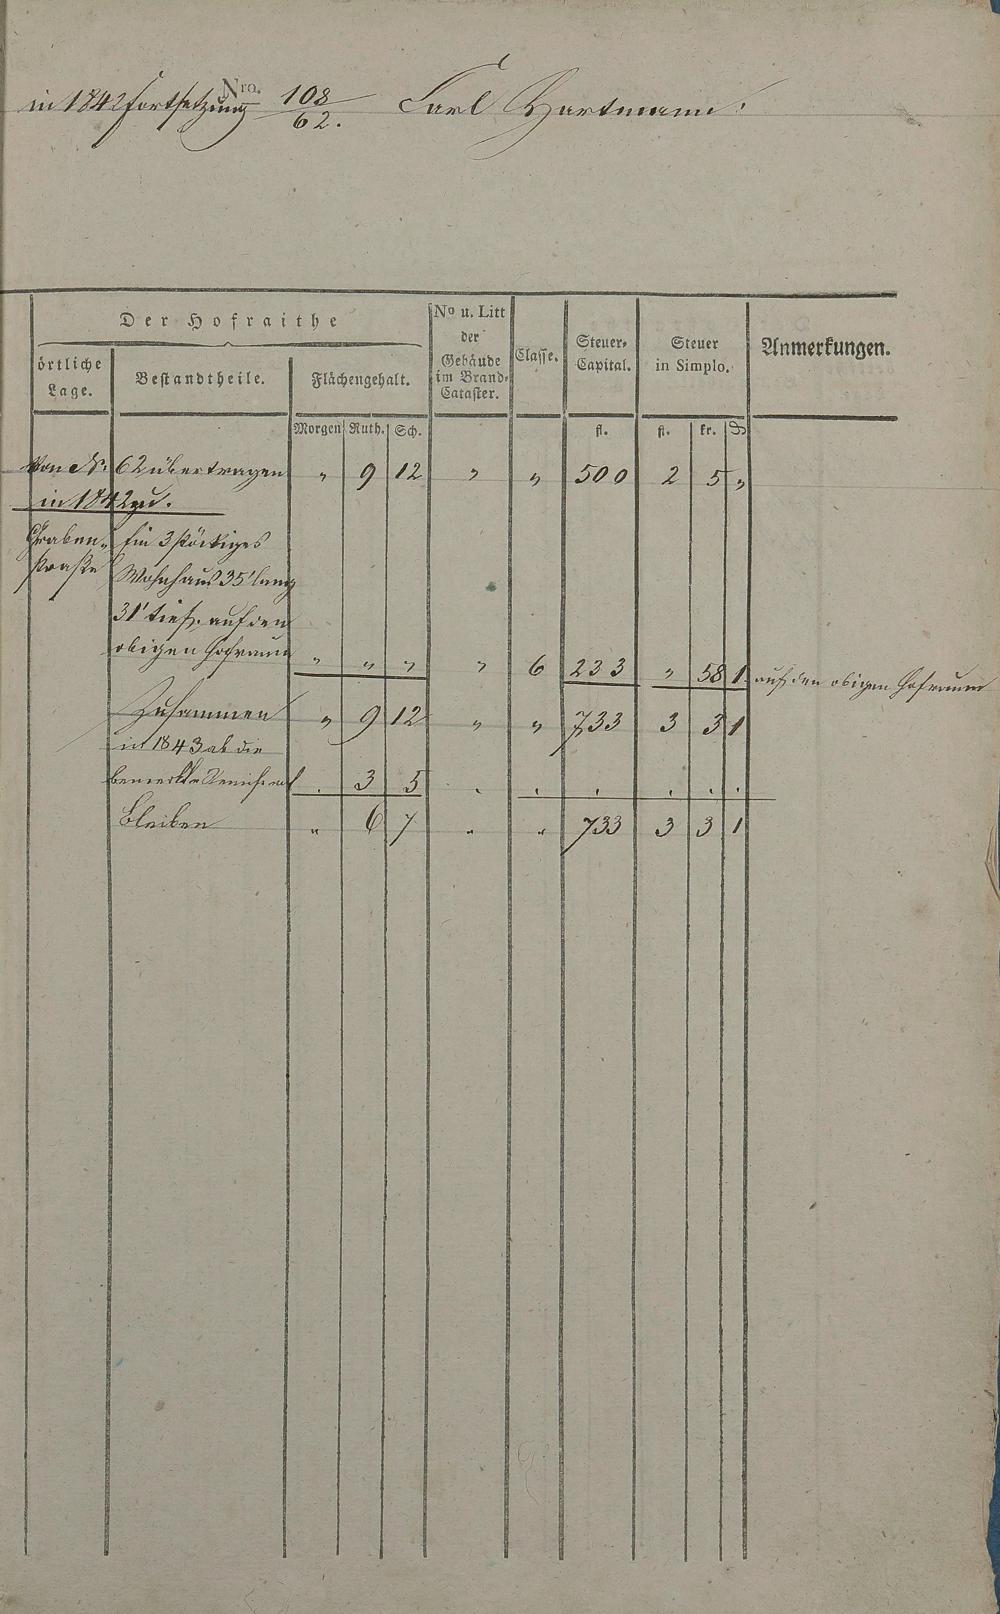 Nro.
in 1842 Fortsetzung 108/62. Carl Hartmann.
Der Hofraithe
örtliche Lage.
Bestandtheile.
Flächengehalt.
No u. Litt der Gebäude im Brand-Cataster.
Classe.
Steuer-Capital.
Steuer in Simplo.
Anmerkungen.
Morgen Ruth. Sch. fl. fl. kr. ₰
Von No. 62 übertragen " 9 12 " " 500 2 5 "
in 1842 zu.
Graben- Ein 3 stöckiges
straße Wohnhaus 35' lang
31' tief, auf den
obigen Hofraum " " " " 6 233 " 58 1 auf den obigen Hofraum
Zusammen " 9 12 " " 733 3 3 1
in 1843 ab die
bemerkte . 3 5 . . . . . .
Bleiben " 6 7 " " 733 3 3 1